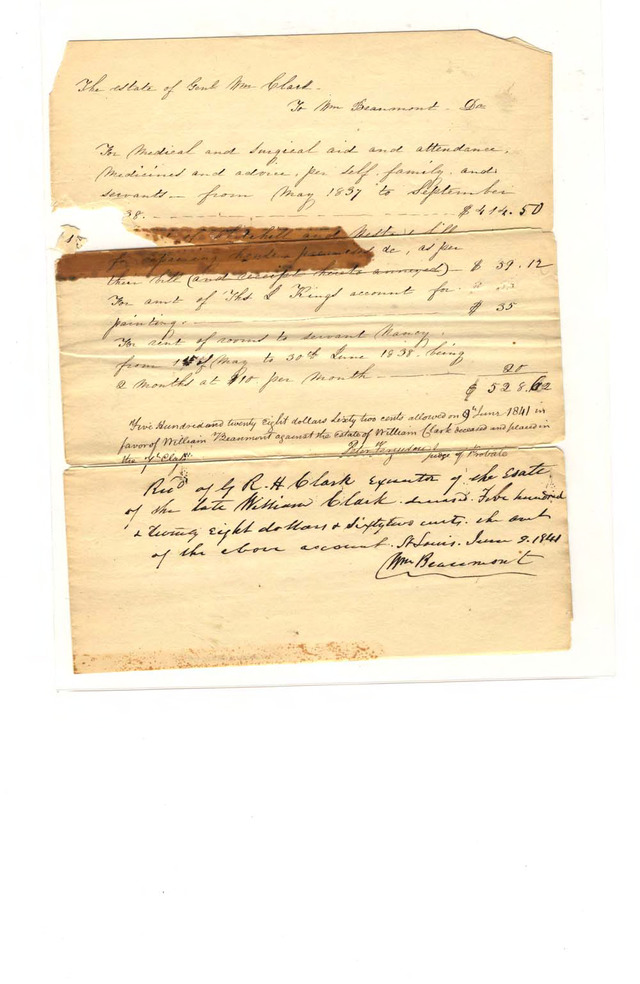 The estate of Genl Wm Clark.
To Wm Beaumont Dr.
For Medical and Surgical aid and attendance,
Medicines and advice, per self family. and
servants — from May 1837 to September
38. $414.50
bill and bill
for repairing &c, as per
their bill (and receipts hereto annexed) — $ 39.12
For amt of Thos L Kings account for
painting. — $ 35
For rent of rooms to servant Nancy.
from 1st May to 30th June 1838. being
2 months at $10 per month — 20
$ 528.62
Five Hundred and twenty Eight dollars Sixty two cents allowed on 9th June 1841 in
favor of William Beaumont against the Estate of William Clark deceased and placed in
the Class
Peter Ferguson Judge of Probate
Recd of G R. H Clark Executor of the Estate
of the late William Clark. deceased. Five hundred
& Twenty Eight dollars & Sixty two cents. the amt
of the above account. St Louis. June 9. 1841
Wm Beaumont